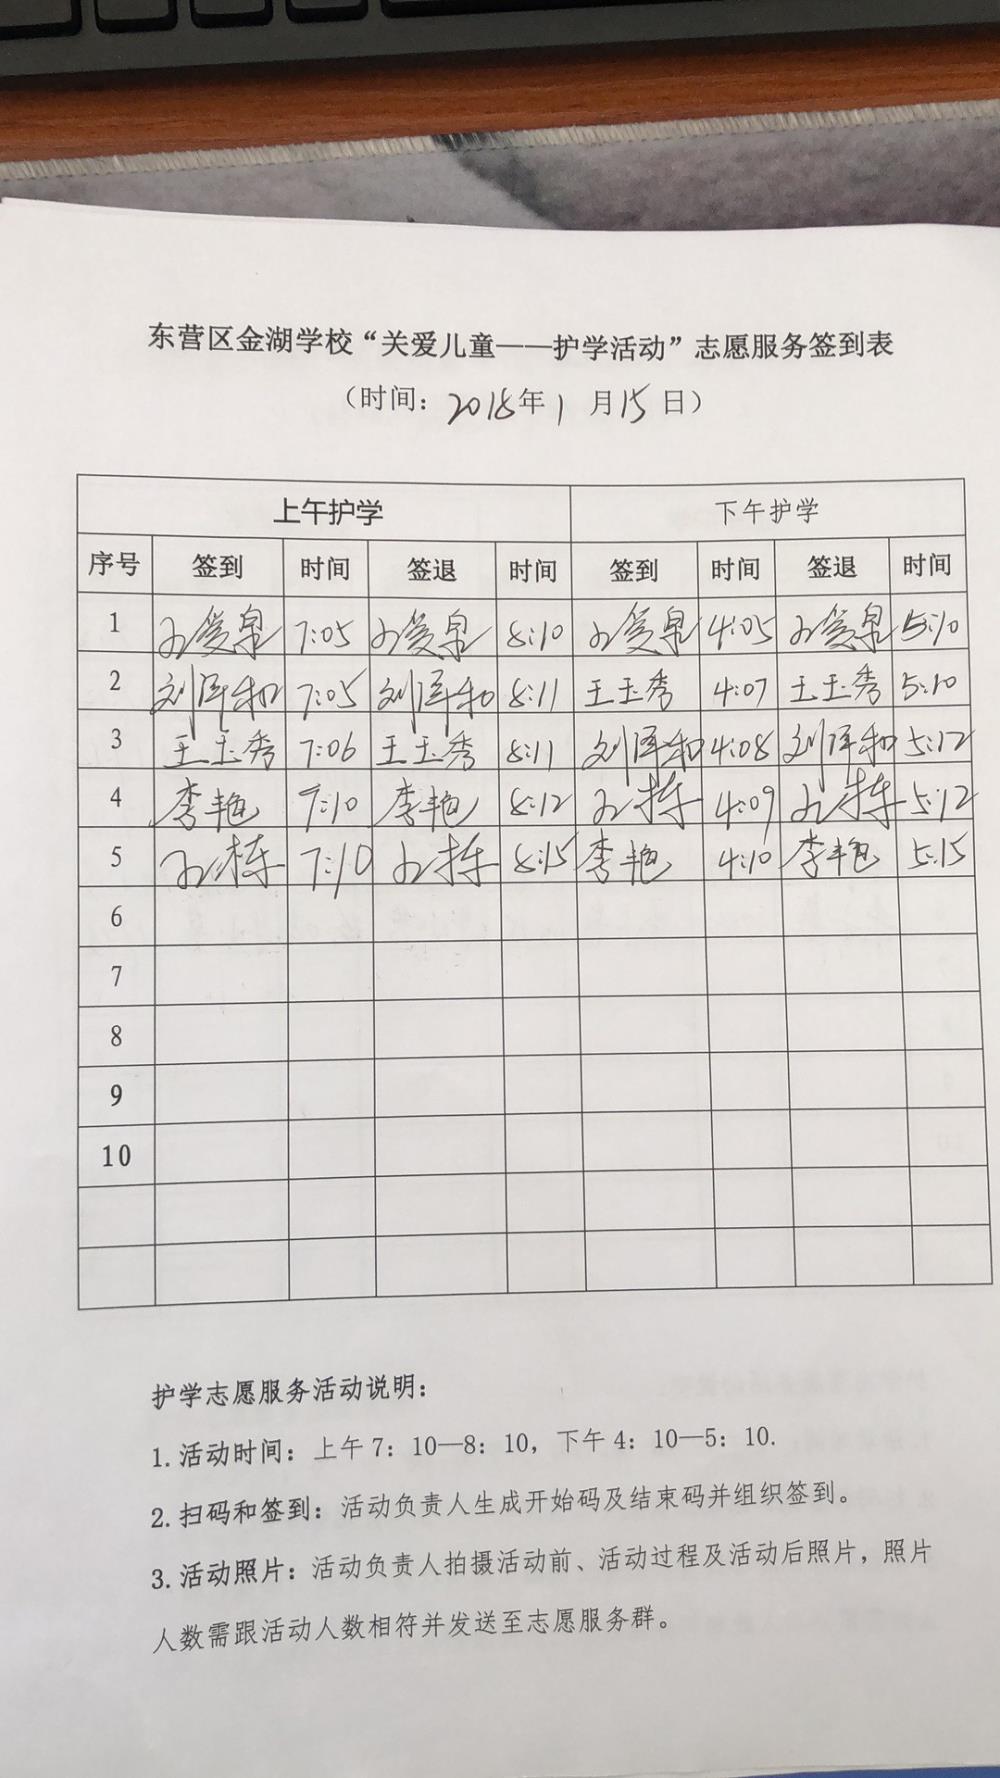 东营区金湖学校“关爱儿童——护学活动”志愿服务签到表
（时间：2018年1月15日）
上午护学 下午护学
序号 签到 时间 签退 时间 签到 时间 签退 时间
1 7:05 8:10 4:05 5:10
2 刘泽和 7:05 刘泽和 8:11 王玉秀 4:07 王玉秀 5:10
3 王玉秀 7:06 王玉秀 8:11 刘泽和 4:08 刘泽和 5:12
4 李艳 7:10 李艳 8:12 孙栋 4:09 孙栋 5:12
5 孙栋 7:10 孙栋 8:15 李艳 4:10 李艳 5:15
6
7
8
9
10
护学志愿服务活动说明：
1.活动时间：上午7：10—8：10，下午4：10—5：10.
2.扫码和签到：活动负责人生成开始码及结束码并组织签到。
3.活动照片：活动负责人拍摄活动前、活动过程及活动后照片，照片
人数需跟活动人数相符并发送至志愿服务群。